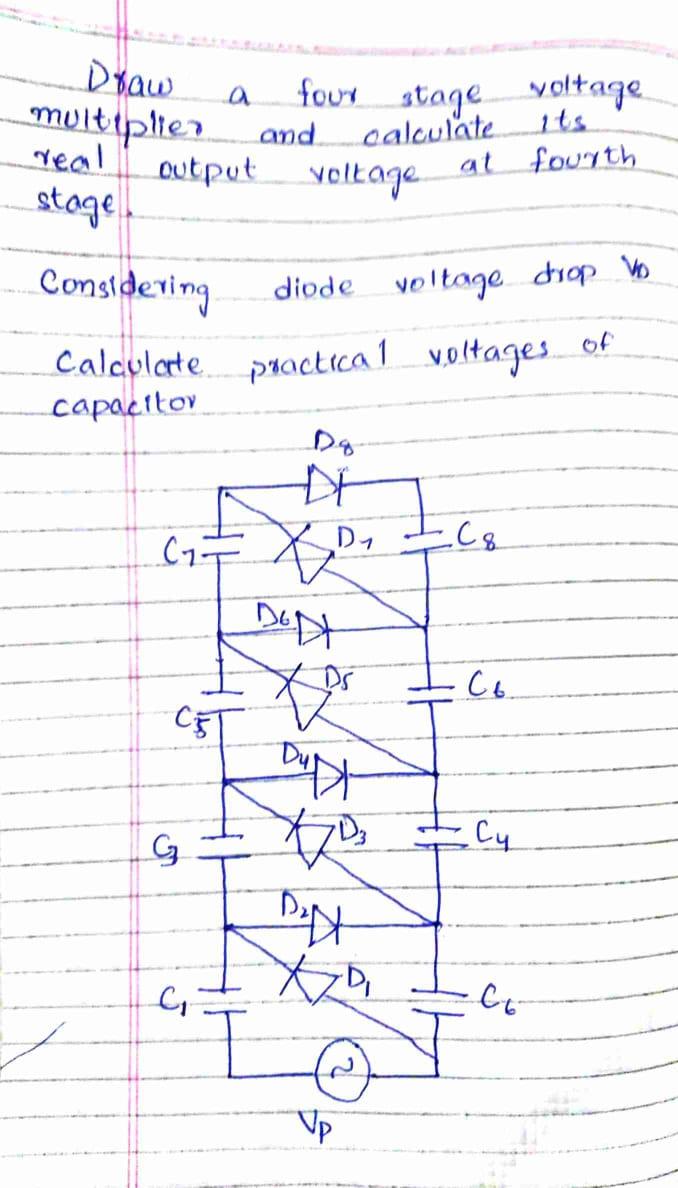 Draw a four stage voltage
multiplier and calculate its
real output voltage at fourth
stage.
Considering diode voltage drop VD
Calculate practical voltages of
capacitor
D8
C7 D7 C8
D6
D5 C6
C5
D4
C3 D3 C4
D2
C1 D1 C6
Vp